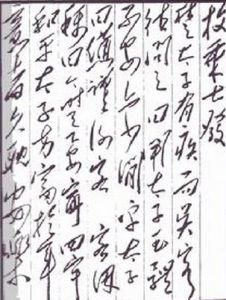 枚乘七發
楚太子有疾而吳客
往問之曰聞太子玉體
不安亦少間乎太子
曰憊謹謝客客因
稱曰今時天下安寧四宇
和平太子方富於年
意者久耽安樂